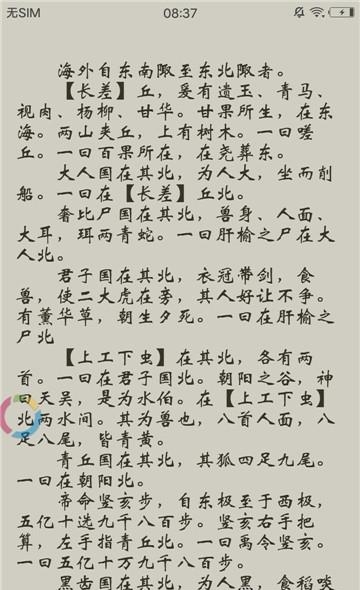 无SIM 08:37
海外自东南陬至东北陬者。
【长差】丘，爰有遗玉、青马、
视肉、杨柳、甘华。甘果所生，在东
海。两山夹丘，上有树木。一曰嗟
丘。一曰百果所在，在尧葬东。
大人国在其北，为人大，坐而削
船。一曰在【长差】丘北。
奢比尸国在其北，兽身、人面、
大耳，珥两青蛇。一曰肝榆之尸在大
人北。
君子国在其北，衣冠带剑，食
兽，使二大虎在旁，其人好让不争。
有薰华草，朝生夕死。一曰在肝榆之
尸北
【上工下虫】在其北，各有两
首。一曰在君子国北。朝阳之谷，神
曰天吴，是为水伯。在【上工下虫】
北两水间。其为兽也，八首人面，八
足八尾，皆青黄。
青丘国在其北，其狐四足九尾。
一曰在朝阳北。
帝命竖亥步，自东极至于西极，
五亿十选九千八百步。竖亥右手把
算，左手指青丘北。一曰禹令竖亥。
一曰五亿十万九千八百步。
黑齿国在其北，为人黑，食稻啖